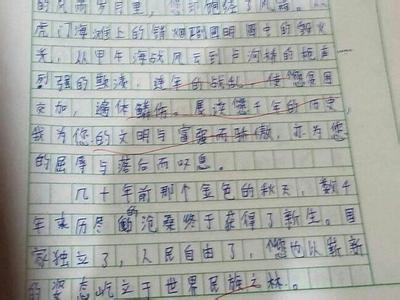 的风雨岁月里，您却饱经了风霜。从
虎门海滩上的销烟到圆明园中的熊火
光，从甲午海战风云到卢沟桥的枪声
烈强的欺凌，连年的战乱，使您贫困
交加，遍体鳞伤。展读您千年的历史，
我为您的文明与富强而骄傲，亦为您
的屈辱与落后而叹息。
几十年前那个金色的秋天，数千
年来历尽的沧桑终于获得了新生。国
家独立了，人民自由了，您也以崭新
的姿态屹立于世界民族之林。